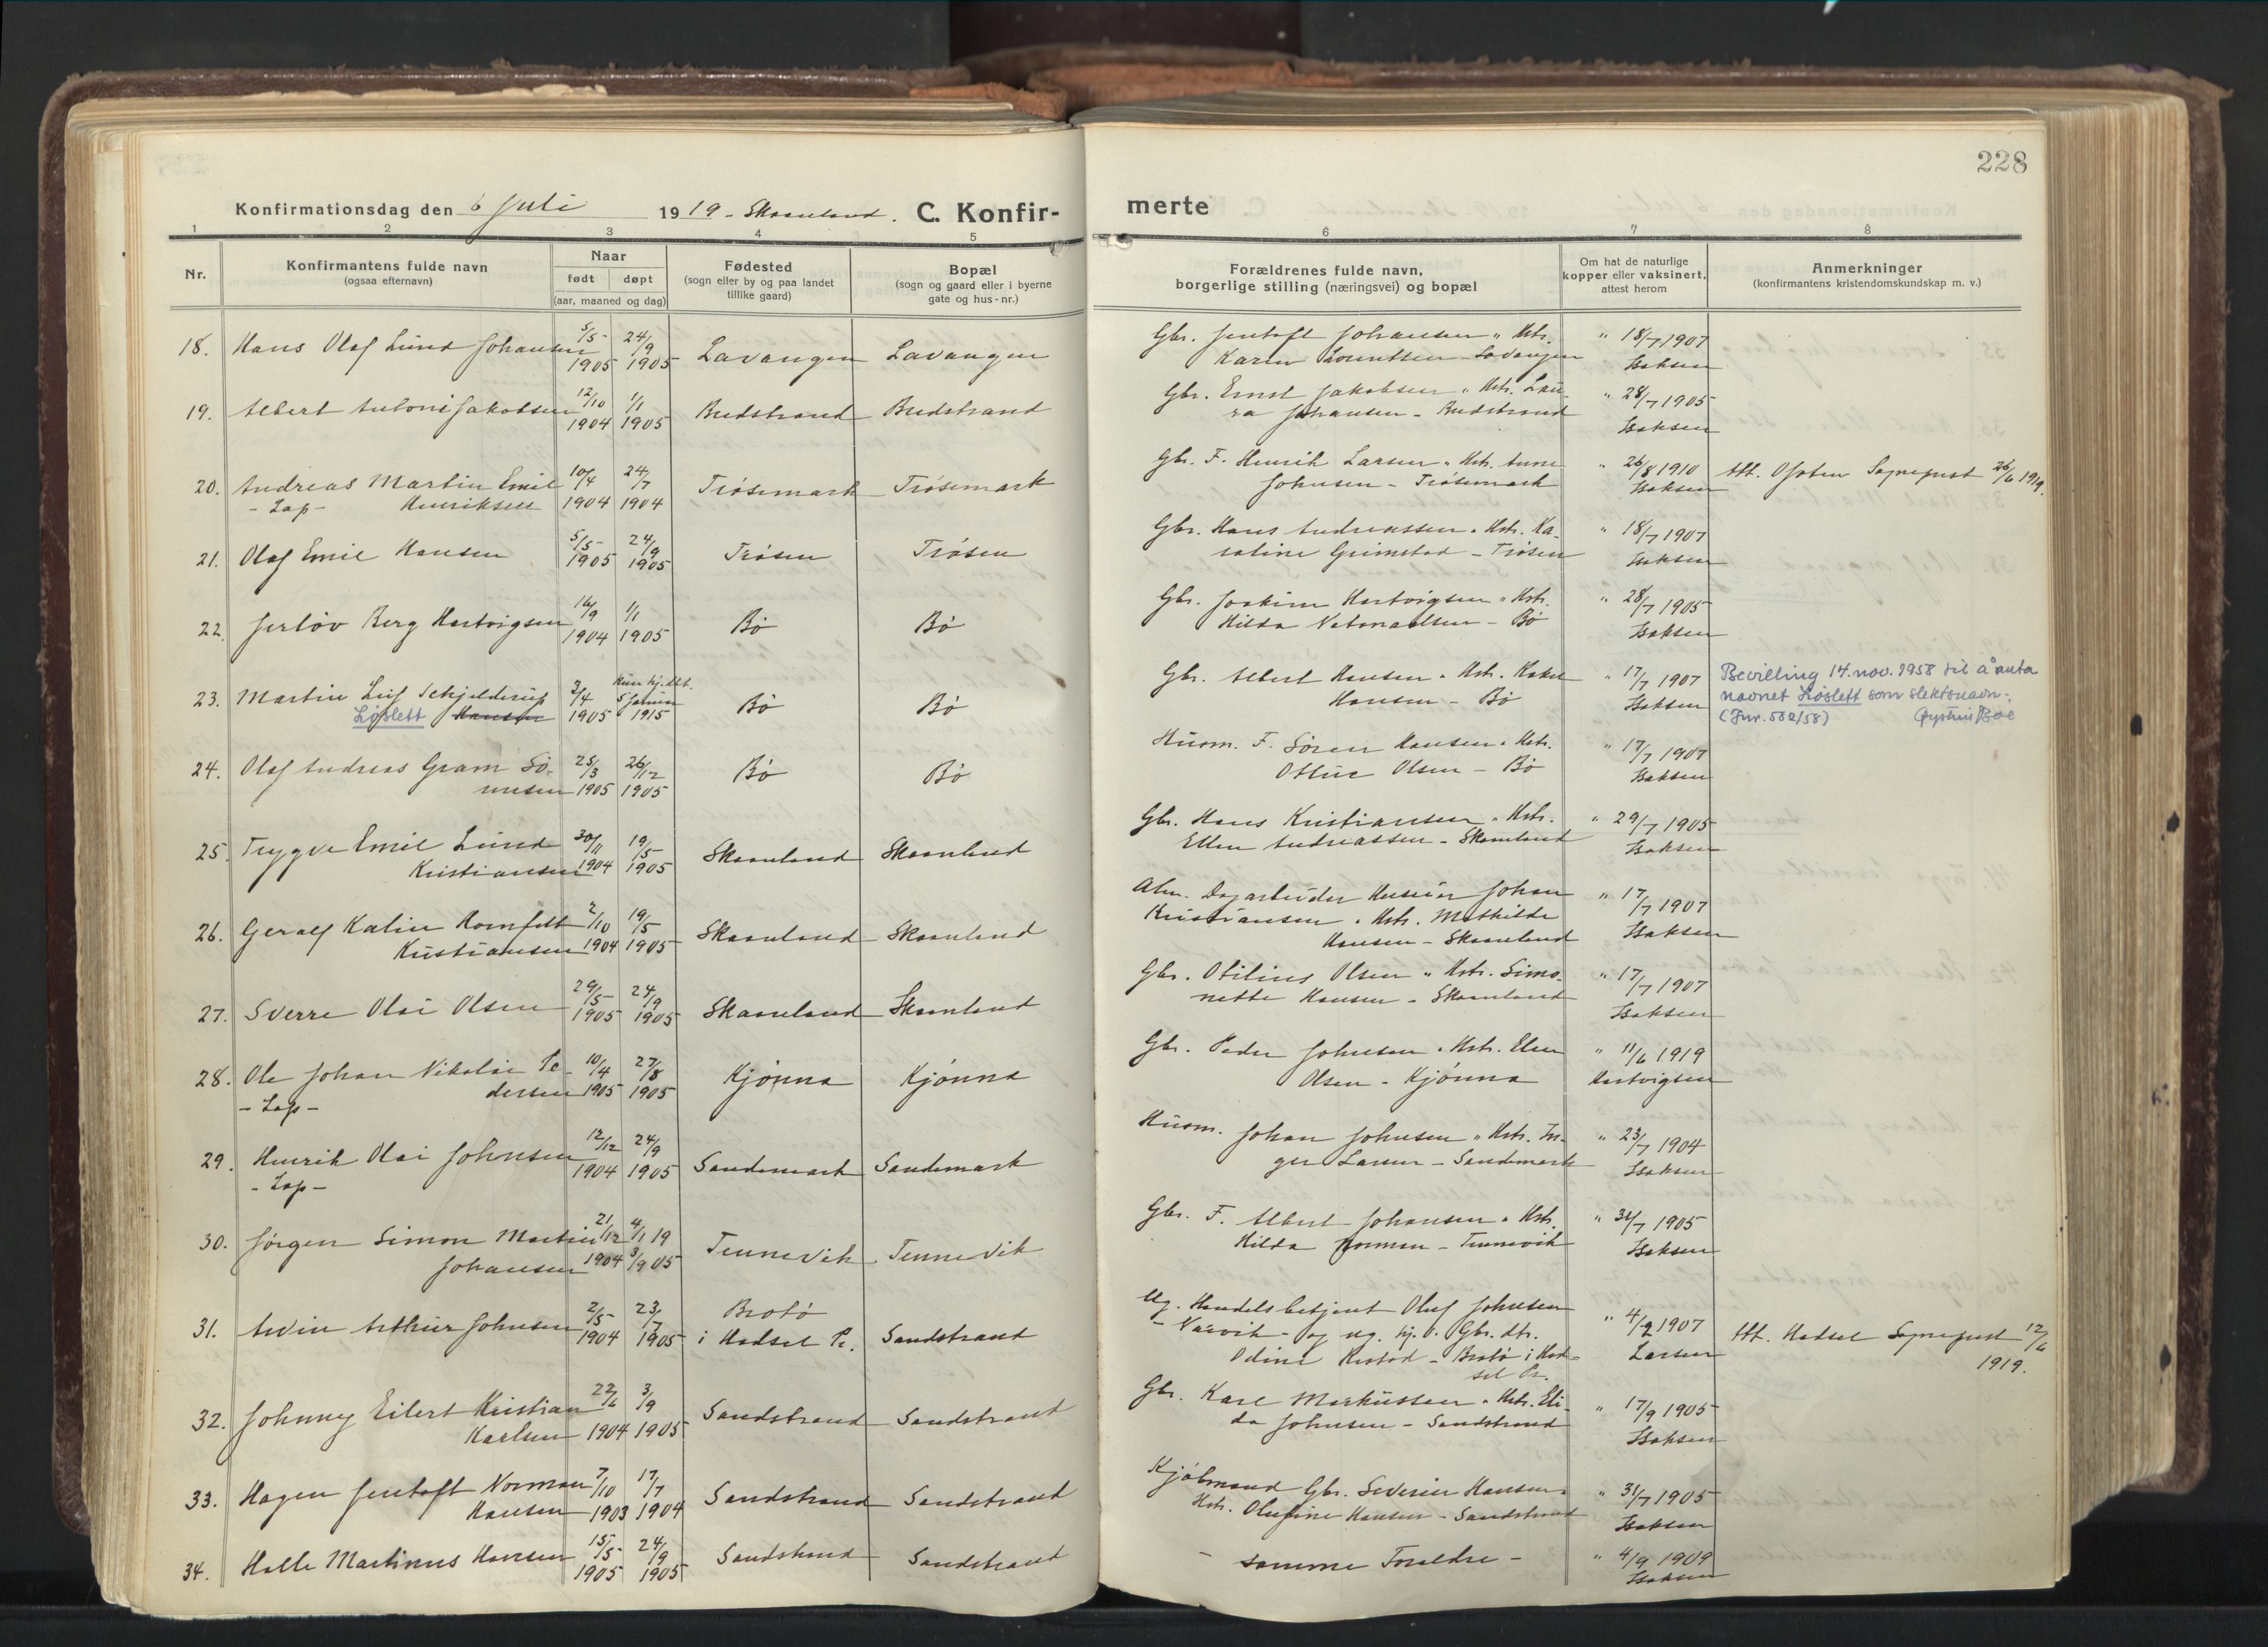 228
Konfirmationsdag den 6 Juli 1919 - Skaanland. C. Konfir-
merte
1 2 3 4 5 6 7 8
Nr.
Konfirmantens fulde navn
(ogsaa efternavn)
Naar
født døpt
(aar, maaned og dag)
Fødested
(sogn eller by og paa landet
tillike gaard)
Bopæl
(sogn og gaard eller i byerne
gate og hus-nr.)
Forældrenes fulde navn,
borgerlige stilling (næringsvei) og bopæl
Om hat de naturlige
kopper eller vaksinert,
attest herom
Anmerkninger
(konfirmantens kristendomskundskap m. v.)
18. Hans Olaf Lund Johansen 5/5 1905 24/9 1905 Lavangen Lavangen
Gbr. Jentoft Johansen " Hstr.
Karen Lorentsen - Lavangen
" 18/7 1907
Isaksen
19. Albert Antoni Jakobsen 12/10 1904 1/1 1905 Budstrand Budstrand
Gbr. Ernst Jakobsen " Hstr. Lau-
ra Johansen - Budstrand
" 28/7 1905
Isaksen
20. Andreas Martin Emil
- Lap - Henriksen 10/4 1904 24/7 1904 Trøsemark Trøsemark
Gbr. F. Henrik Larsen " Hstr. Anne
Johnsen - Trøsemark
" 26/8 1910
Isaksen
Att. Ofoten Sogneprest 26/6 1919.
21. Olaf Emil Hansen 5/5 1905 24/9 1905 Trøsen Trøsen
Gbr. Hans Andreassen " Hstr. Ka-
ratine Grimstad - Trøsen
" 18/7 1907
Isaksen
22. Jerløv Berg Hartvigsen 16/9 1904 1/1 1905 Bø Bø
Gbr. Joakim Hartvigsen " Hstr.
Hilda Natanaelsen - Bø
" 28/7 1905
Isaksen
23. Martin Leif Schjelderup
Løslett Hansen 3/4 1905 Kun hj.dbt. 5 Januar 1915 Bø Bø
Gbr. Albert Hansen " Hstr.
Hansen - Bø
" 17/7 1907
Isaksen
Bevilling 14. nov. 1958 til å anta
navnet Løslett som slektsnavn.
(Jnr. 502/58) Øystein Bøe
24. Olaf Andreas Gram Sø-
rensen 25/3 1905 26/12 1905 Bø Bø
Husm. F. Søren Hansen " Hstr.
Otline Olsen - Bø
" 17/7 1907
Isaksen
25. Trygve Emil Lund
Kristiansen 30/11 1904 19/5 1905 Skaanland Skaanland
Gbr. Hans Kristiansen " Hstr.
Ellen Andreassen - Skaanland
" 29/7 1905
Isaksen
26. Geralf Kalin Kornfelt
Kristiansen 2/10 1904 19/5 1905 Skaanland Skaanland
Alm. Dagarbeider Husmor Johan
Kristiansen " Hstr. Mathilde
Hansen - Skaanland
" 17/7 1907
Isaksen
27. Sverre Olai Olsen 29/5 1905 24/9 1905 Skaanland Skaanland
Gbr. Otilius Olsen " Hstr. Simo-
nette Hansen - Skaanland
" 17/7 1907
Isaksen
28. Ole Johan Nikolai Pe-
- Lap - dersen 10/4 1905 27/8 1905 Kjønna Kjønna
Gbr. Peder Johnsen " Hstr. Elen
Olsen - Kjønna
" 11/6 1919
Hartvigsen
29. Henrik Olai Johnsen
- Lap - 12/12 1904 24/9 1905 Sandemark Sandemark
Husm. Johan Johnsen " Hstr. In-
ger Larsen - Sandemark
" 23/7 1904
Isaksen
30. Jørgen Simon Martin
Johansen 21/12 1904 4/1 19 3/9 05 Tennevik Tennevik
Gbr. F. Albert Johansen " Hstr.
Hilda Norman - Tennevik
" 31/7 1905
Isaksen
31. Arvin Arthur Johnsen 2/5 1904 23/7 1905 Brotø
i Hadsel Pr. Sandstrand
Ug. Handelsbetjent Oluf Johnsen
- Narvik - og ug. hj.v. Gbr. dtr.
Odine Restad - Brotø i Had-
sel Pr.
" 4/2 1907
Larsen
Att. Hadsel Sogneprest 12/6
1919.
32. Johnny Eilert Kristian
Karlsen 22/6 1904 3/9 1905 Sandstrand Sandstrand
Gbr. Karl Markussen " Hstr. Eli-
da Johnsen - Sandstrand
" 17/9 1905
Isaksen
33. Hagen Jentoft Norman
Hansen 7/10 1903 17/7 1904 Sandstrand Sandstrand
Kjøbmand Gbr. Severin Hansen "
Hstr. Olufine Hansen - Sandstrand
" 31/7 1905
Isaksen
34. Halle Martinus Hansen 15/5 1905 24/9 1905 Sandstrand Sandstrand
- samme Foreldre -
" 4/9 1909
Isaksen